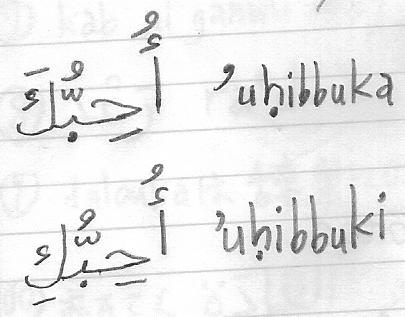 أُحِبُّكَ ’uḥibbuka
أُحِبُّكِ ’uḥibbuki